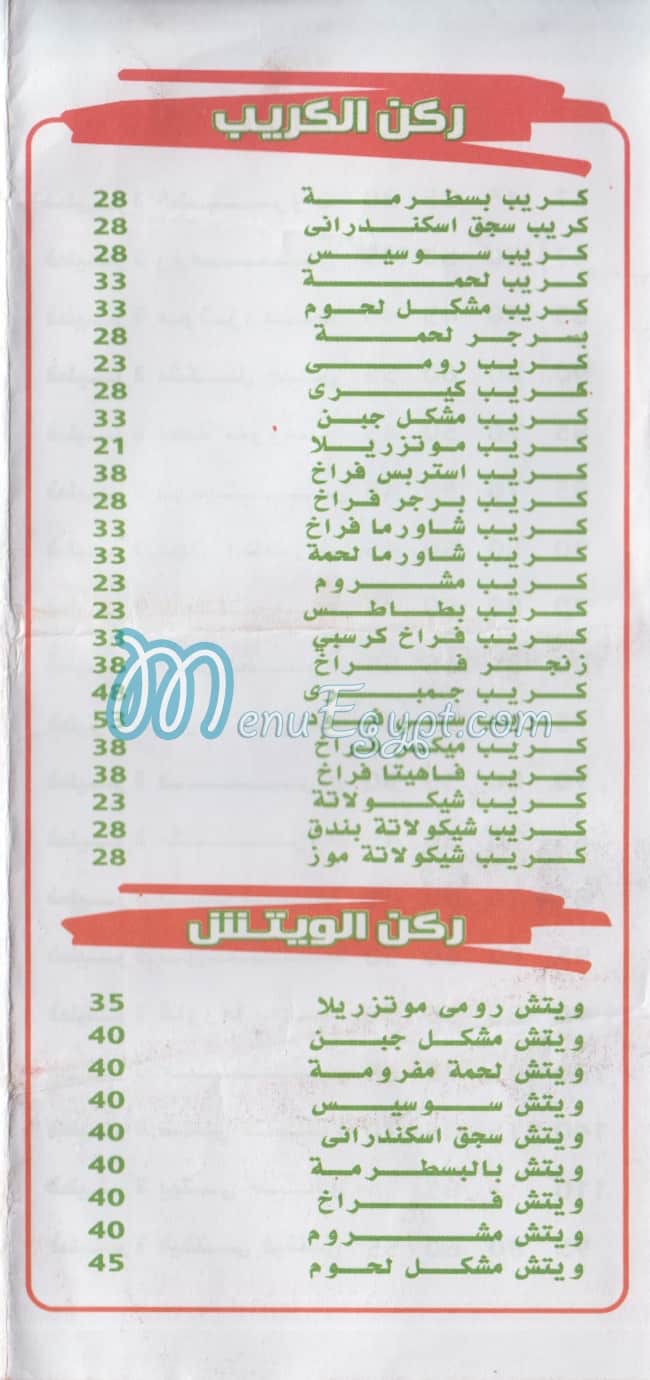 ركن الكريب
كريب بسطرمة 28
كريب سجق اسكندرانى 28
كريب سوسيس 28
كريب لحمة 33
كريب مشكل لحوم 33
برجر لحمة 28
كريب رومى 23
كريب كيرى 28
كريب مشكل جبن 33
كريب موتزريلا 21
كريب استربس فراخ 38
كريب برجر فراخ 28
كريب شاورما فراخ 33
كريب شاورما لحمة 33
كريب مشروم 23
كريب بطاطس 23
كريب فراخ كرسبي 33
زنجر فراخ 38
كريب جمبرى 48
كريب فراخ 53
كريب ميكس فراخ 38
كريب فاهيتا فراخ 38
كريب شيكولاتة 23
كريب شيكولاتة بندق 28
كريب شيكولاتة موز 28
MenuEgypt.com
ركن الويتش
ويتش رومى موتزريلا 35
ويتش مشكل جبن 40
ويتش لحمة مفرومة 40
ويتش سوسيس 40
ويتش سجق اسكندرانى 40
ويتش بالبسطرمة 40
ويتش فراخ 40
ويتش مشروم 40
ويتش مشكل لحوم 45